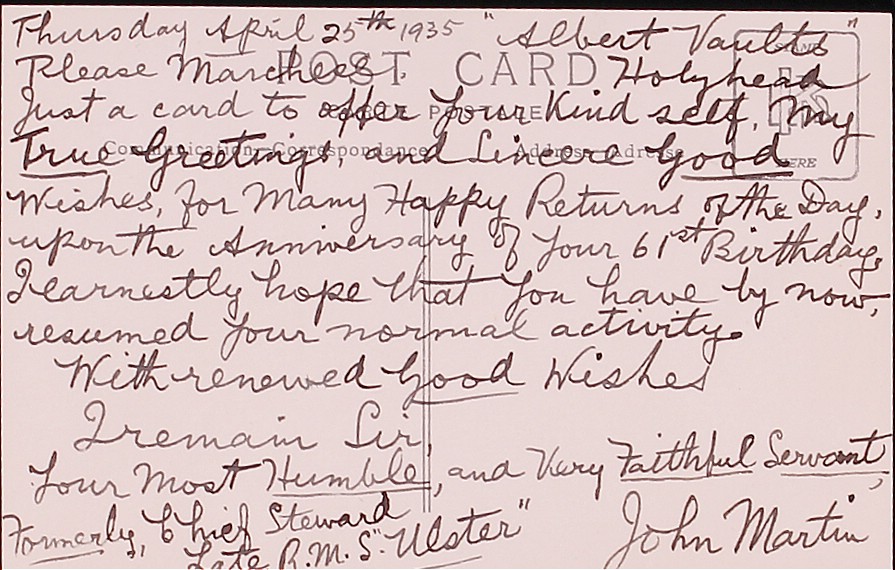 Thursday April 25th 1935 "Albert Vaults"
Please Marchese. Holyhead
Just a card to offer Your Kind self, My
True Greetings, and Sincere Good
Wishes, for Many Happy Returns of the Day,
upon the Anniversary of Your 61st Birthday,
I earnestly hope that You have by now,
resumed Your normal activity.
With renewed Good Wishes
I remain Sir,
Your Most Humble, and Very Faithful Servant,
Formerly, Chief Steward
Late R.M.S. "Ulster"
John Martin
POST CARD
Communication-Correspondance
Address-Adresse
STAMP
HERE